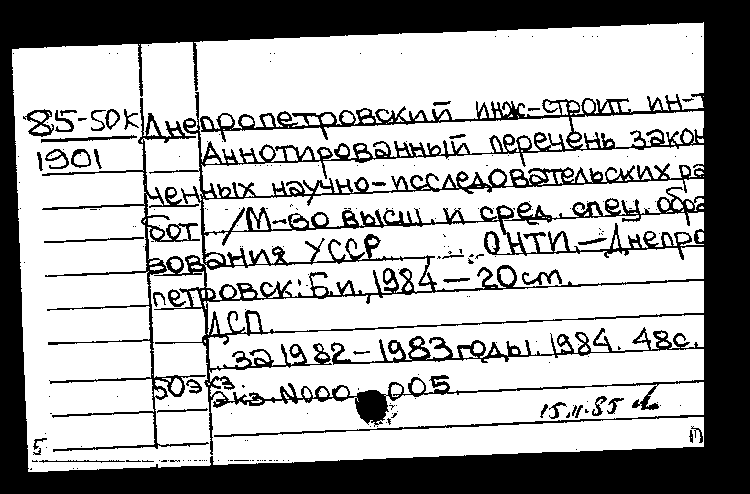 85-50к Днепропетровский инж-строит. ин-т
1901 Аннотированный перечень закон
ченных научно-исследовательских ра
бот ../М-во высш. и сред. спец. обра
зования УССР ...... ОНТИ.—Днепро
петровск: Б.и., 1984 — 20 cm.
ДСП.
.. за 1982-1983 годы. 1984. 48с.
50экз
Экз. N000 005.
15.11.85
5 m